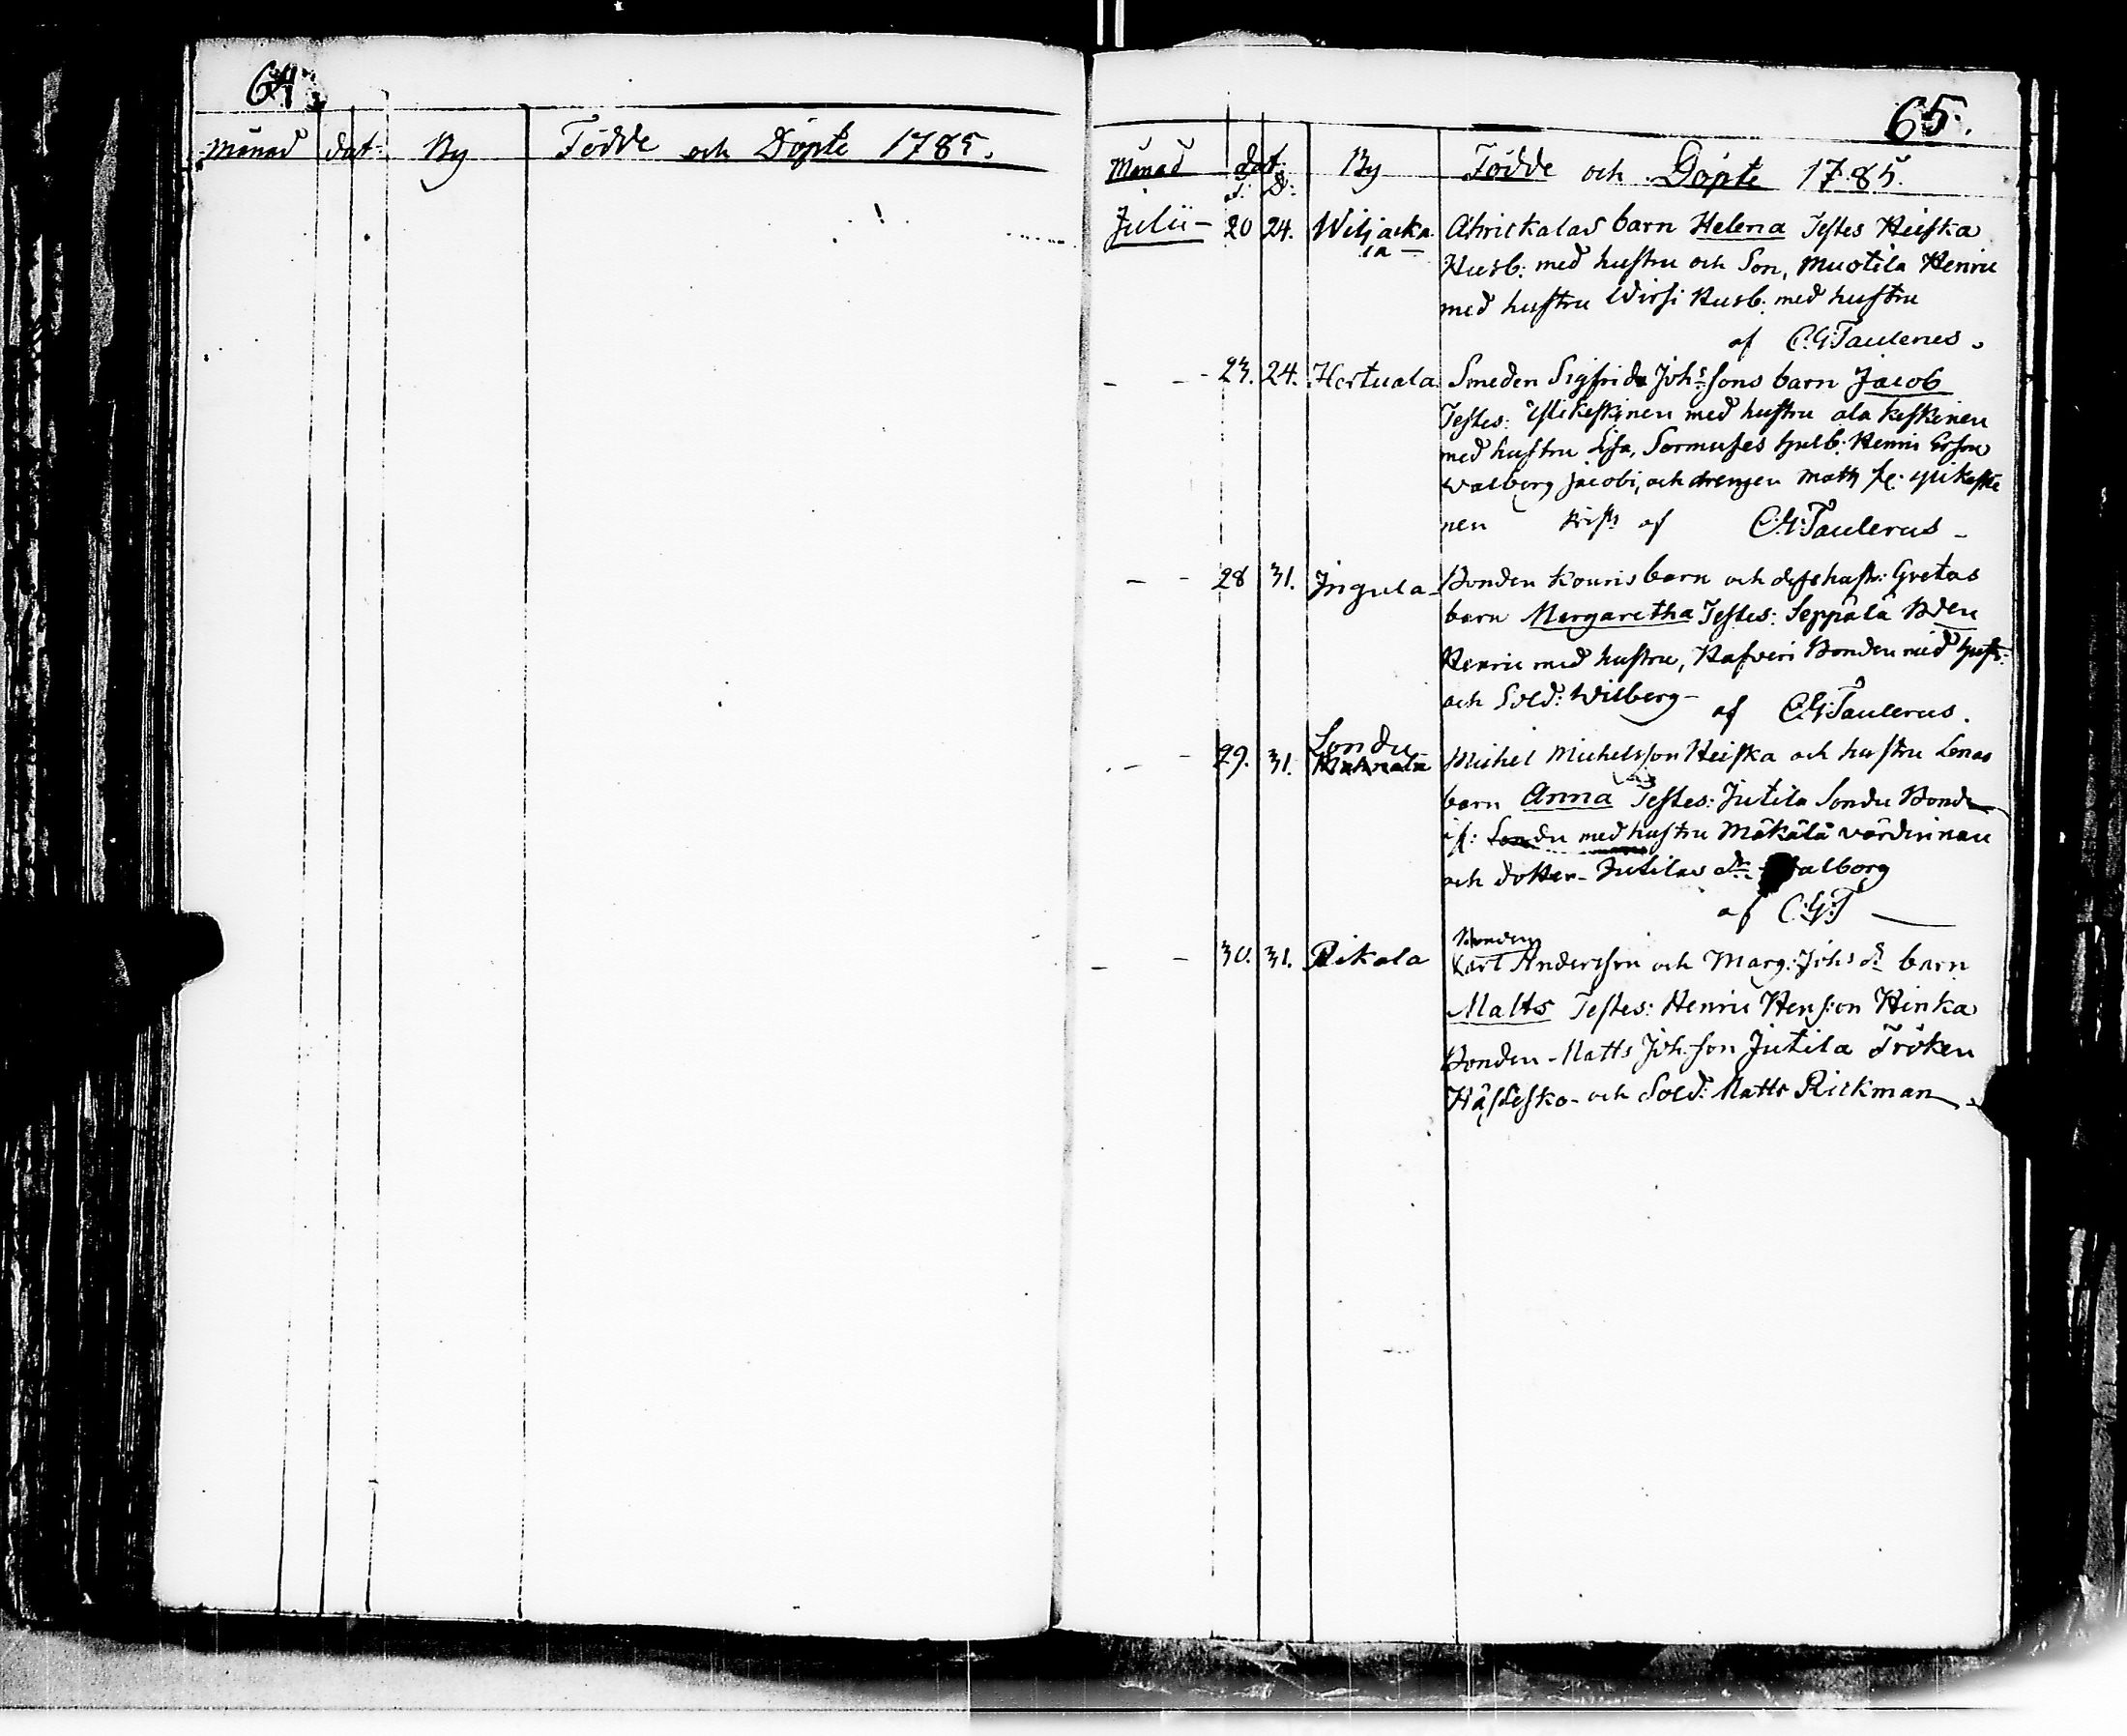 64
Månad dat: By Födde och Döpte 1785.
65.
Månad dat: By Födde och Döpte 1785.
f: D:
Julii – 20 24. Wiljacka Ahrickalas barn Helena Testes Heiska
la — Husb: med hustru och Son, Muotila Henric
med hustru Wirsi Husb. med hustru
af C.G:Taulerus.
– – 23. 24. Hertuala Smeden Sigfrids Johssons barn Jacob
Testes: Ylikeskinen med hustru ala keskinen
med hustru Lisa, Sormuses Husb: Henric
Walborg Jacobi, och drengen Math
nen af C.G:Taulerus –
– – 28 31. Jngula Bonden Kouris barn och dess hustr: Gretas
barn Margaretha Testes: Seppälä Bden
Henric med hustru, Bonden med hustr:
och Sold: Wilberg – af C.G:Taulerus.
– – 29. 31. Sondu Michel Michelsson Heiska och hustru Lenas
barn Anna Testes: Jutila Sondu Bonde
Sondu med hustru Mäkälä värdinnan
och dotter – Jutilas dr: Walborg
af C:G:T —
– – 30. 31. Rikala Bonden
Karl Andersson och Marg: Johs dr barn
Matts Testes: Henric Hens:on Hinka
Bonden – Matts Joh:son Jutila Fröken
Hästesko – och Sold: Matts Rickman